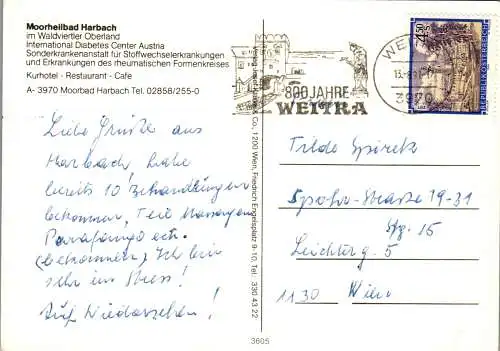 Moorheilbad Harbach
im Waldviertler Oberland
International Diabetes Center Austria
Sonderkrankenanstalt für Stoffwechselerkrankungen
und Erkrankungen des rheumatischen Formenkreises
Kurhotel - Restaurant - Cafe
A- 3970 Moorbad Harbach Tel. 02858/255-0
Liebe Grüße aus
Harbach, habe
bereits 10 Behandlungen
bekommen, Teil Massagen
ect.
(bekommen) Ich bin
sehr im Stress!
Auf Wiedersehen!
Co., 1200 Wien, Friedrich Engelsplatz 9-10, Tel.: 330 43 22
3605
800 JAHRE
WEITRA
3970
4.50
REPUBLIK ÖSTERREICH
Tilde
Spohr-Strasse 19-31
Stg. 15
5
1130 Wien